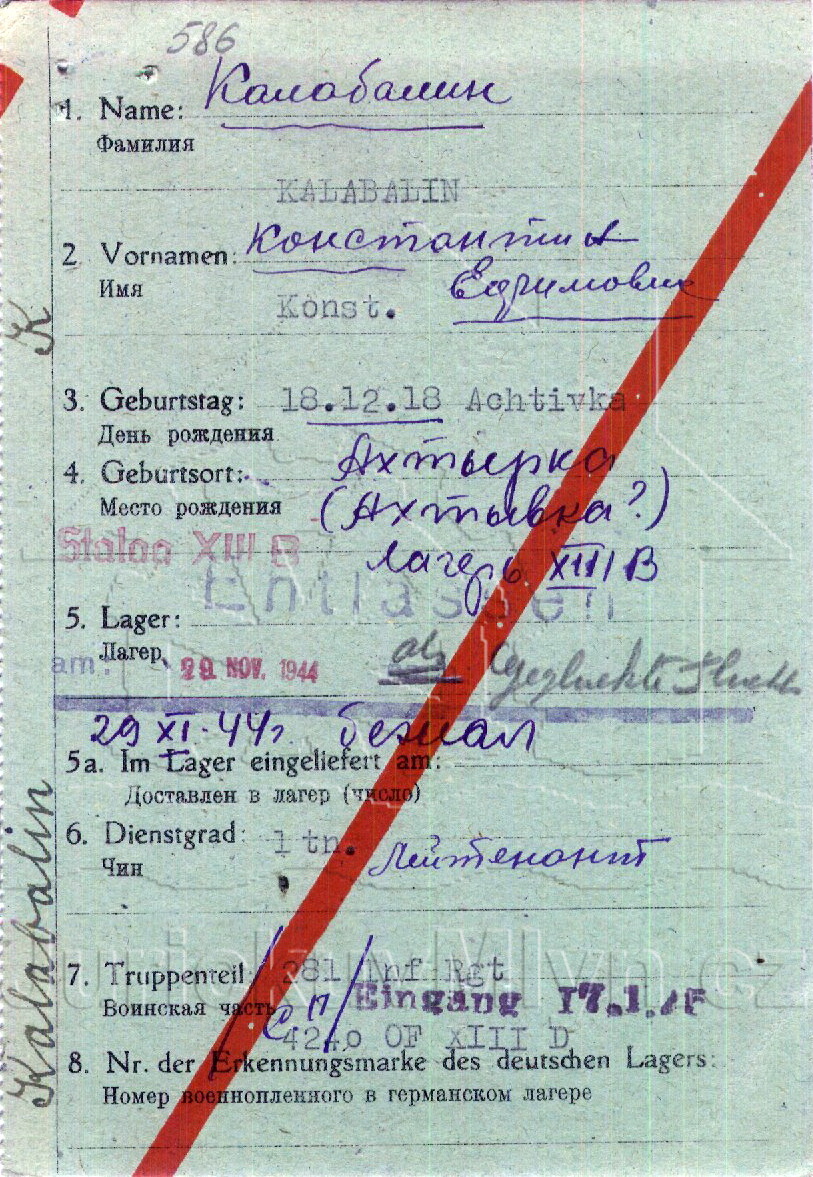 586
1. Name: Калабалин
Фамилия
KALABALIN
2. Vornamen: Константин
Имя
Ефимович
Konst.
K
3. Geburtstag: 18.12.18 Achtivka
День рождения
4. Geburtsort: Ахтырка
Место рождения (Ахтывка?)
Stalag XIII B
Лагерь XIII В
Entlassen
5. Lager:
Лагерь
am: 29 NOV. 1944
als Geglückte Flucht
29 XI. 44г бежал
5a. Im Lager eingeliefert am:
Доставлен в лагер (число)
6. Dienstgrad: ltn. Лейтенант
Чин
7. Truppenteil: 281 Inf Rgt
Воинская часть
Eingang 17.1.
4240 OF XIII D
8. Nr. der Erkennungsmarke des deutschen Lagers:
Номер военнопленного в германском лагере
Kalabalin